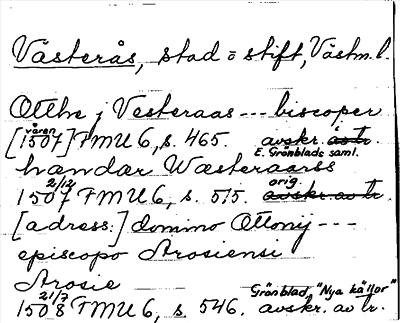 Västerås, stad o stift, Västm. l.
Otthe j Vesteraas --- biscoper
våren
[1507] FMU 6, s. 465. avskr. av tr.
E. Grönblads saml.
hændar Wæsteraarss
2/12 orig.
1507 FMU 6, s. 515. avskr. av tr.
[adress:] domino Ottonij ---
episcopo Arosiensi
Arosie
21/7 Grönblad, "Nya källor"
1508 FMU 6, s. 546. avskr. av tr.